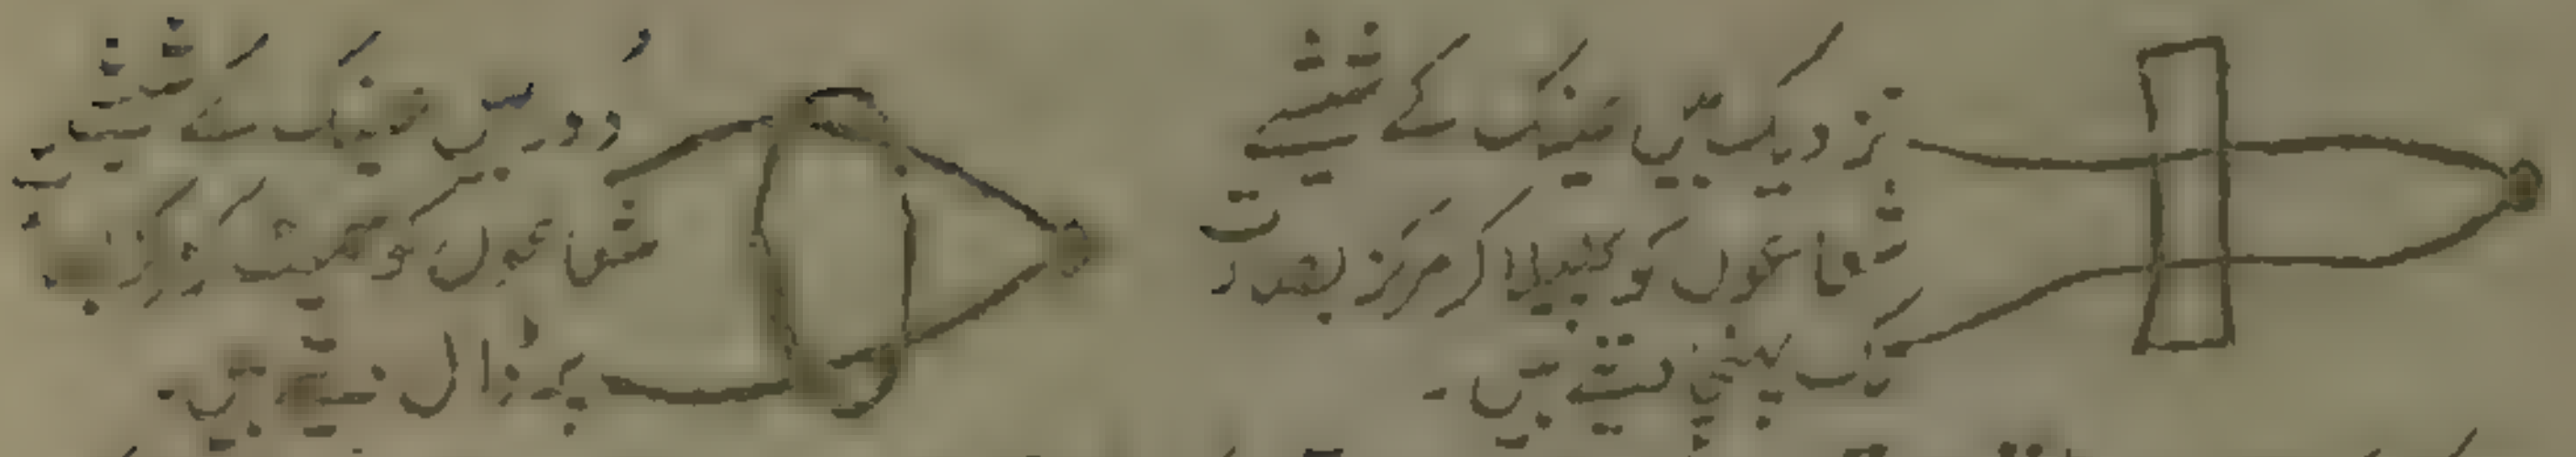 نزدیک بیں عینک کے شیشے
شعاعوں کو پھیلا کر مرکز بصارت
تک پہنچا دیتے ہیں۔
دوربیں عینک کے شیشے
شعاعوں کو سمیٹ کر مرکز
پر ڈال دیتے ہیں۔